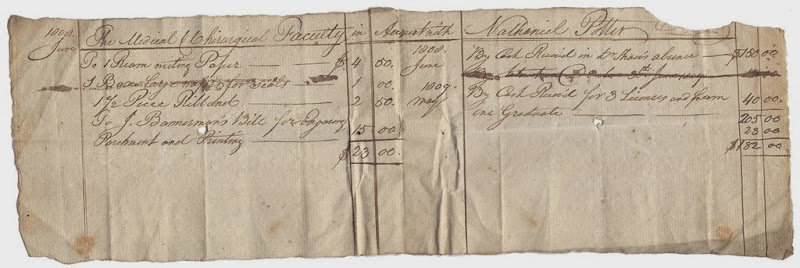 1808 June
The Medical & Chirurgical Faculty in Account with Nathaniel Potter
To 1 Ream writing Paper — $ 4 50.
1 Boxes Large for Seals 1 00
1 1/2 Piece Ribband — 2 50.
To J. Bannerman's Bill for Engraving
Parchment and Printing — 15 00
$ 23 00.
1808 June
By Cash Receiv'd in Dr Shaw's absence — $150.00
1809. May
By Cash Receiv'd for 3 Licenses and from
one Graduate — 40 00
205 00
23 00
$182 00